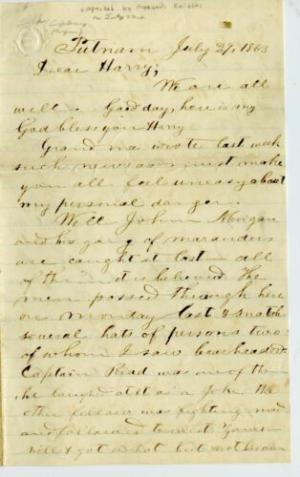 Putnam July 29, 1863
Dear Harry;
We are all
well. Good day, here is my
God bless you Harry
Grand ma wrote last week
such news as must make
you all feel uneasy about
my personal danger.
Well John Morgan
and his gang of marauders
are caught at last - all
of them it is believed. The
men passed through here
on Monday last & snatch
several hats of persons two
of whom I saw bareheaded.
Captain Read was one of them
he laughed at it as a joke the
other fellow was fighting mad
and
will & got a hat but not